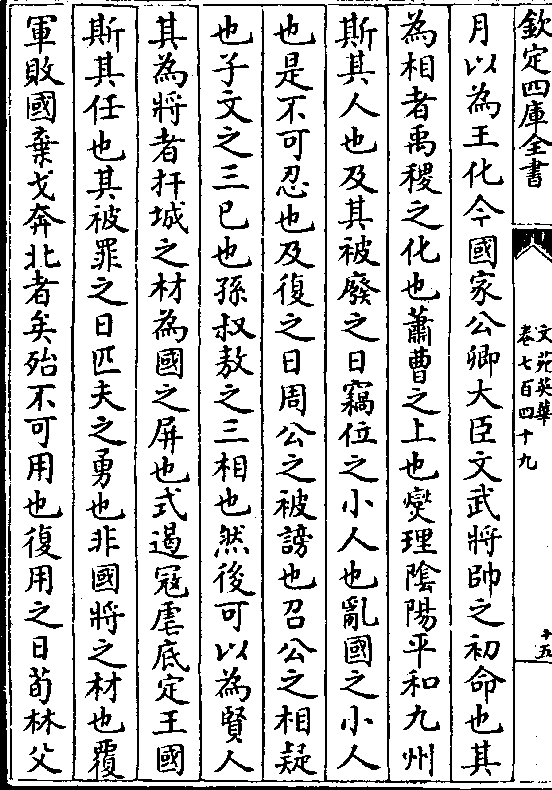 欽定四庫全書
文苑英華
卷七百四十九
十五
月以為王化今國家公卿大臣文武將帥之初命也其
為相者禹稷之化也蕭曹之上也爕理隂陽平和九州
斯其人也及其被廢之日竊位之小人也亂國之小人
也是不可忍也及復之日周公之被謗也召公之相疑
也子文之三已也孫叔敖之三相也然後可以為賢人
其為將者扞城之材為國之屏也式遏冦虐底定王國
斯其任也其被罪之日匹夫之勇也非國將之材也覆
軍敗國棄戈奔北者矣殆不可用也復用之日荀林父